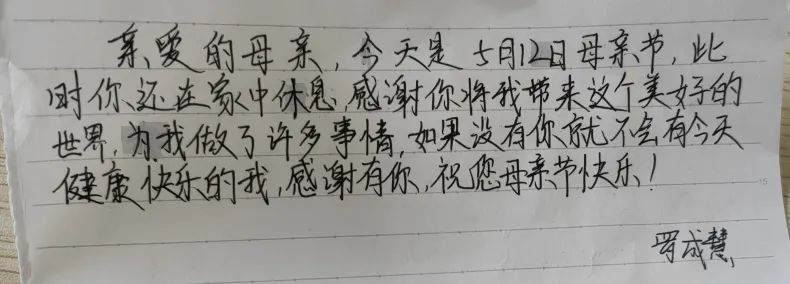 亲爱的母亲，今天是5月12日母亲节，此
时你还在家中休息，感谢你将我带来这个美好的
世界，为我做了许多事情，如果没有你就不会有今天
健康快乐的我，感谢有你，祝您母亲节快乐！
罗成慧